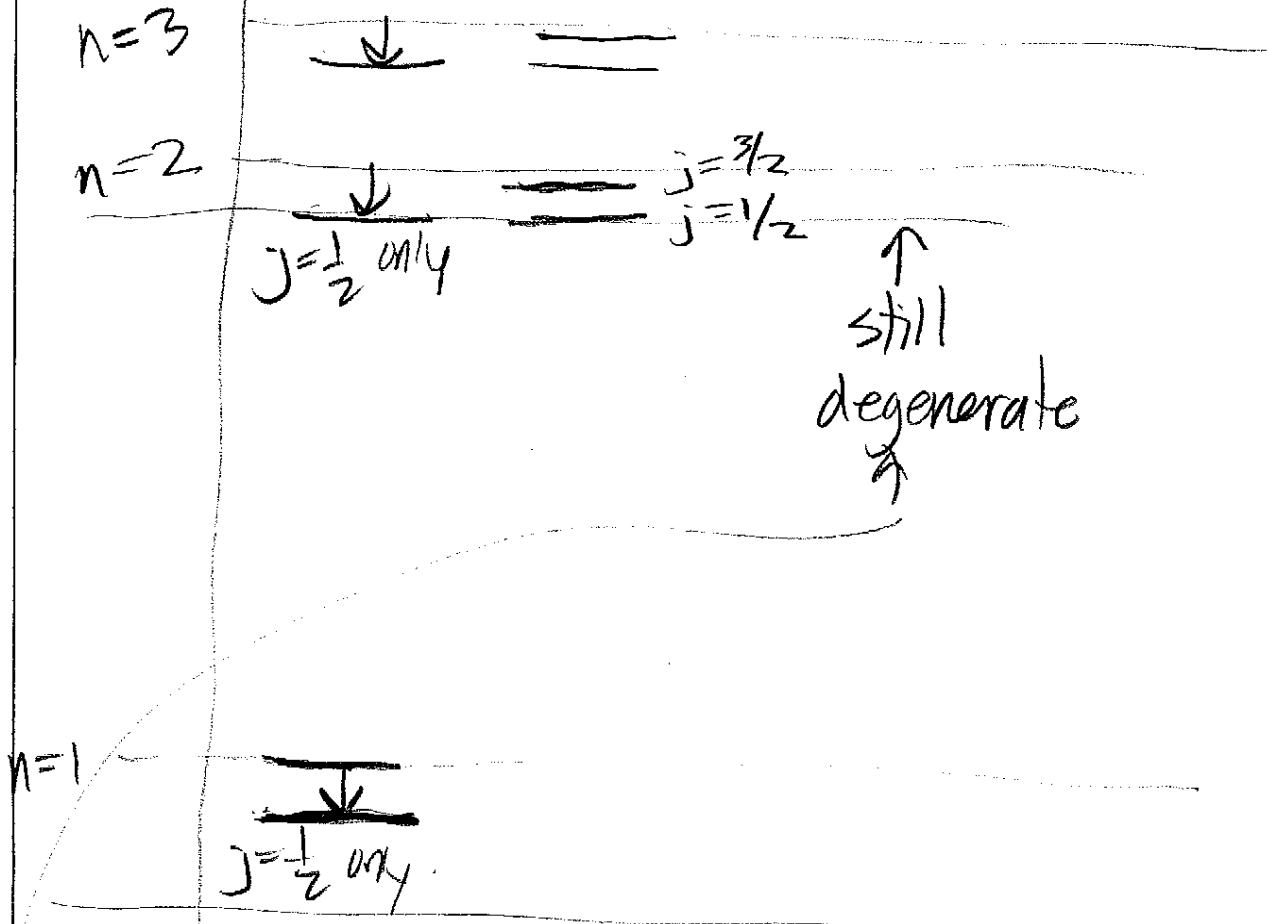 n=3
n=2
j=3/2
j=1/2
j=1/2 only
still
degenerate
n=1
j=1/2 only.